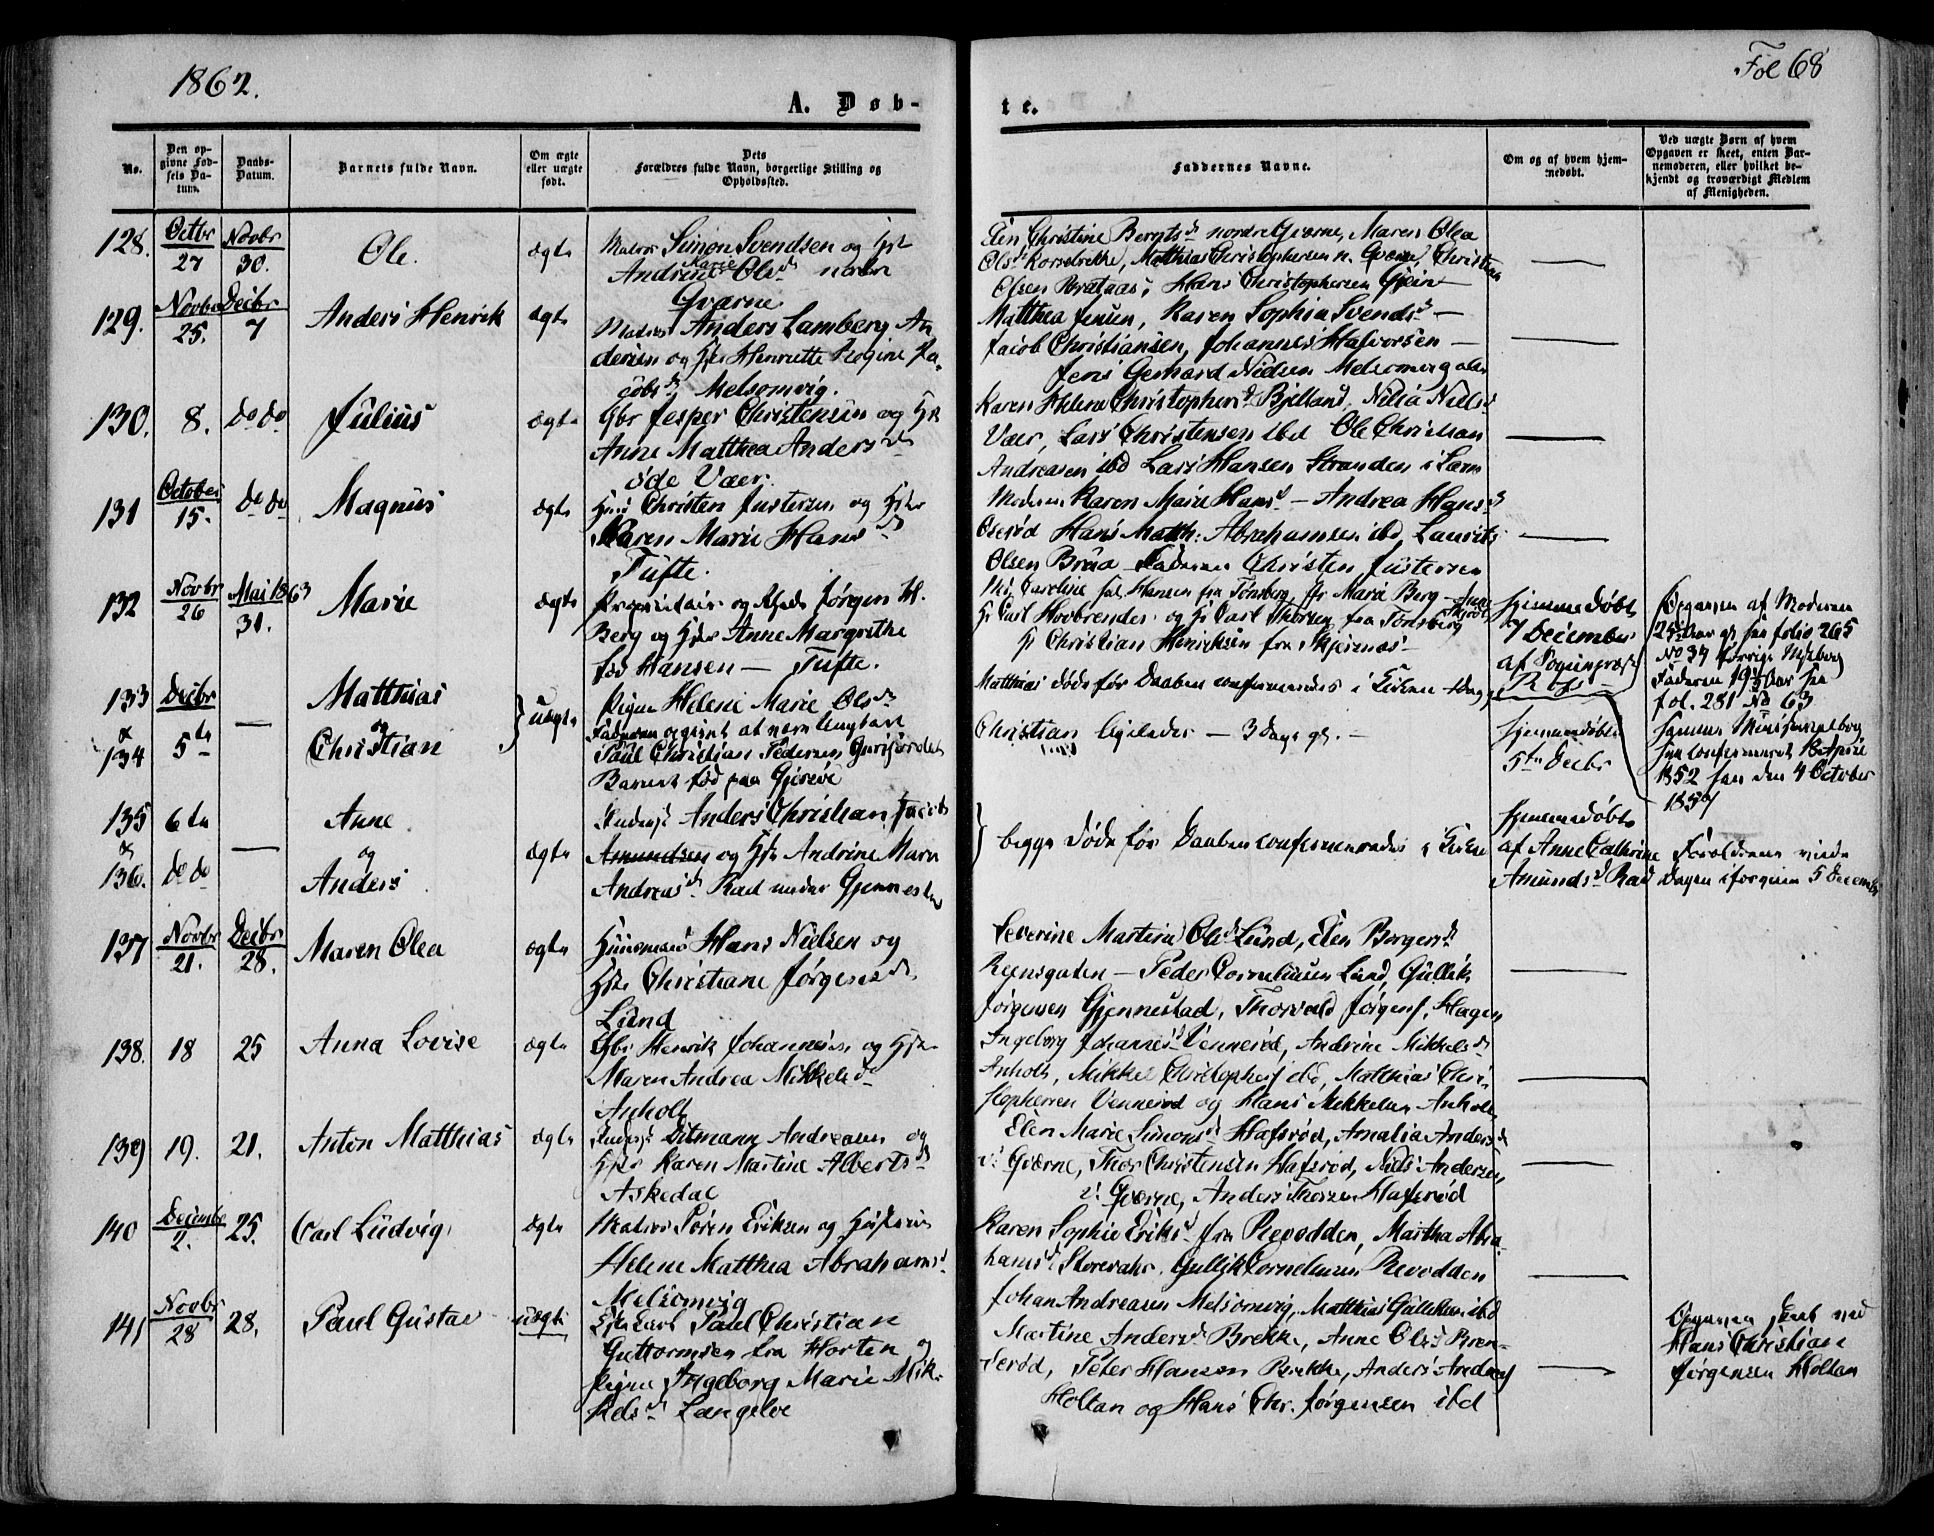 1862.
Fol 68
A. Døb-
te.
No.
Den op-
givne Fød-
sels Da-
tum.
Daabs-
Datum.
Barnets fulde Navn.
Om ægte
eller uægte
født.
Dets
Forældres fulde Navn, borgerlige Stilling og
Opholdssted.
Faddernes Navne.
Om og af hvem hjem-
medøbt.
Ved uægte Børn af hvem
Opgaven er skeet, enten Bar-
nemoderen, eller hvilket be-
kjendt og troværdigt Medlem
af Menigheden.
128. Octbr 27 Novbr 30. Ole. ægte
Matros Simon Svendsen og Hst
Andrine Marie Olsd nordre
Gværne
Elen Christine Berntsd nordre Gværne, Maren Olea
Olsd Korsebrekke, Matthias Christophersen n. Gværne, Christian
Olsen Brataas, Hans Christophersen Gjein
129. Novbr 25. Decbr 7 Anders Henrik ægte
Matros Anders Lamberg An-
dersen og Hst Henriette Regine Ja-
cobsd Melsomvig.
Matthea Jensen, Karen Sophia Svendsd —
Jacob Christiansen, Johannes Halvorsen —
Jens Gerhard Nielsen Melsomvig alle
130. 8. do do Julius ægte
Gbr Jesper Christensen og Hst
Anne Matthea Andersd
øde Væer.
Karen Helene Christophersd Bjelland, Nilia Nielsd
Væer, Lars Christensen ibd Ole Christian
Andreasen ibd Lars Hansen Stranden i Larm
131 October 15. do do Magnus ægte
Huus Christen Justersen og Hstr
Karen Marie Hansd
Tufte.
Moderen Karen Marie Hansd — Andrea Hansd
Oserød Hans Matth: Abrahamsen ibd, Laurits
Olsen Brua Faderen Christen Justersen
132 Novbr 26 Mai 1863 31. Marie ægte
Proprietair og Kjøbm Jørgen H.
Berg og Hstr Anne Margrethe
fød Hansen — Tufte.
Md. Caroline Hansen fra Tønsberg, Jfr Marie Berg
Hr Carl Hovbrender og Hr Carl Thorsen fra Tønsberg
Hr Christian Henriksen fra Skjernæs
hjemmedøbt
7 December
af Sogneprest
133 Decbr Matthias uægte
&
134 5te — og
Christian
Pigen Helene Marie Olsd
Faderen opgivet at være Ungkarl
Paul Christian Pedersen
Barnet fød paa Gjersøe
Matthias døde før Daaben confirmeredes i Kirken 1 Dag gl
Christian ligeledes — 3 Dage gl. —
hjemmedøbt
5te Decbr
Opgaven af Moderen
25 Aar gl fra folio 265
No 34 forrige Mbog
Faderen 19½ Aar fra
fol. 281 No 63
samme Ministerialbog
hun confirmeret 18 April
1852 han den 4 October
1857
135 6te Anne
& — og
136. do do Anders ægte
Anders Christian Jacobs
Amundsen og Hst Andrine Marie
Andreasd Rad under Gjennestad
begge døde før Daaben confirmeredes i Kirken
hjemmedøbt
af Anne Cathrine
Amundsd Rad
Forældrene viede
Dagen iforveien 5 December
137 Novbr 21. Decbr 28. Maren Olea ægte
Huusmand Hans Nielsen og
Hst Christiane Jørgensd
Lund
Severine Martine Olsd Lund, Elen Borgersd
Reensgaten — Peder Cornelius Lund, Gullik
Jørgensen Gjennestad, Thorvald Jørgens, Hagen
138. 18 25 Anna Lovise ægte
Gbr Henrik Johannesen og Hst
Maren Andrea Mikkelsd
Anholt
Ingeborg Johannesd Vennerød, Andrine Mikkelsd
Anholt, Mikkel Christophers ibd, Matthias Chri-
stophersen Vennerød og Hans Mikkelsen Anholt
139 19. 21. Anton Matthias ægte
Ditmann Andreasen og
Hst Karen Martine Albertsd
Askedal
Elen Marie Simonsd Hafsrød, Amalia Andersd
v. Gværne, Thor Christensen Hafsrød, Niels Andersen
v. Gværne, Anders Thorsen Hafsrød
140 Decembr 2. 25. Carl Ludvig ægte
Matros Søren Eriksen og Hustrue
Helene Matthea Abrahamsd
Melsomvig
Karen Sophie Eriksd fra Revodden, Martha Abra-
hamsd Storevahr, Gullik Cornelius Revodden
Johan Andreasen Melsomvig, Matthias Gulliksen ibd
141 Novbr 28 28. Paul Gustav uægte
Paul Christian
Guttormsen fra Horten og
Pigen Ingeborg Marie Mik-
kelsd Langelve
Martine Andersd Brekke, Anne Olsd Bren-
derød, Peter Hansen Brekke, Anders Anders
Holtan og Hans Chr. Jørgensen ibd
Opgaven skeet ved
Hans Christian
Jørgensen Holtan